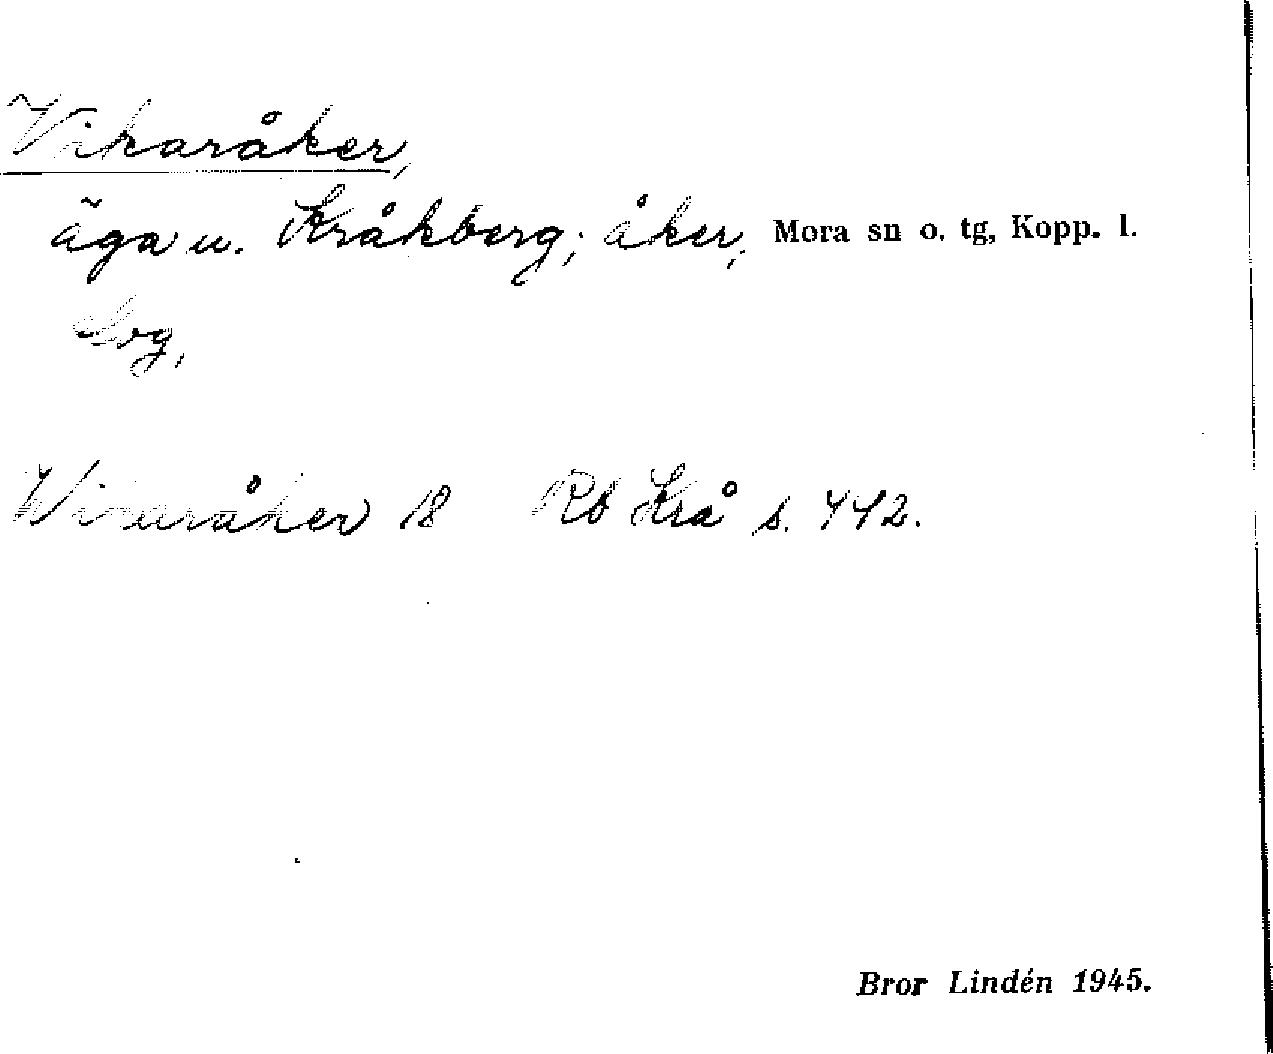 Vikaråker,
äga u. Kråkberg; åker, Mora sn o. tg, Kopp. l.
Svg,
Wikaråker 18 Rb Krå s. 442.
Bror Lindén 1945.